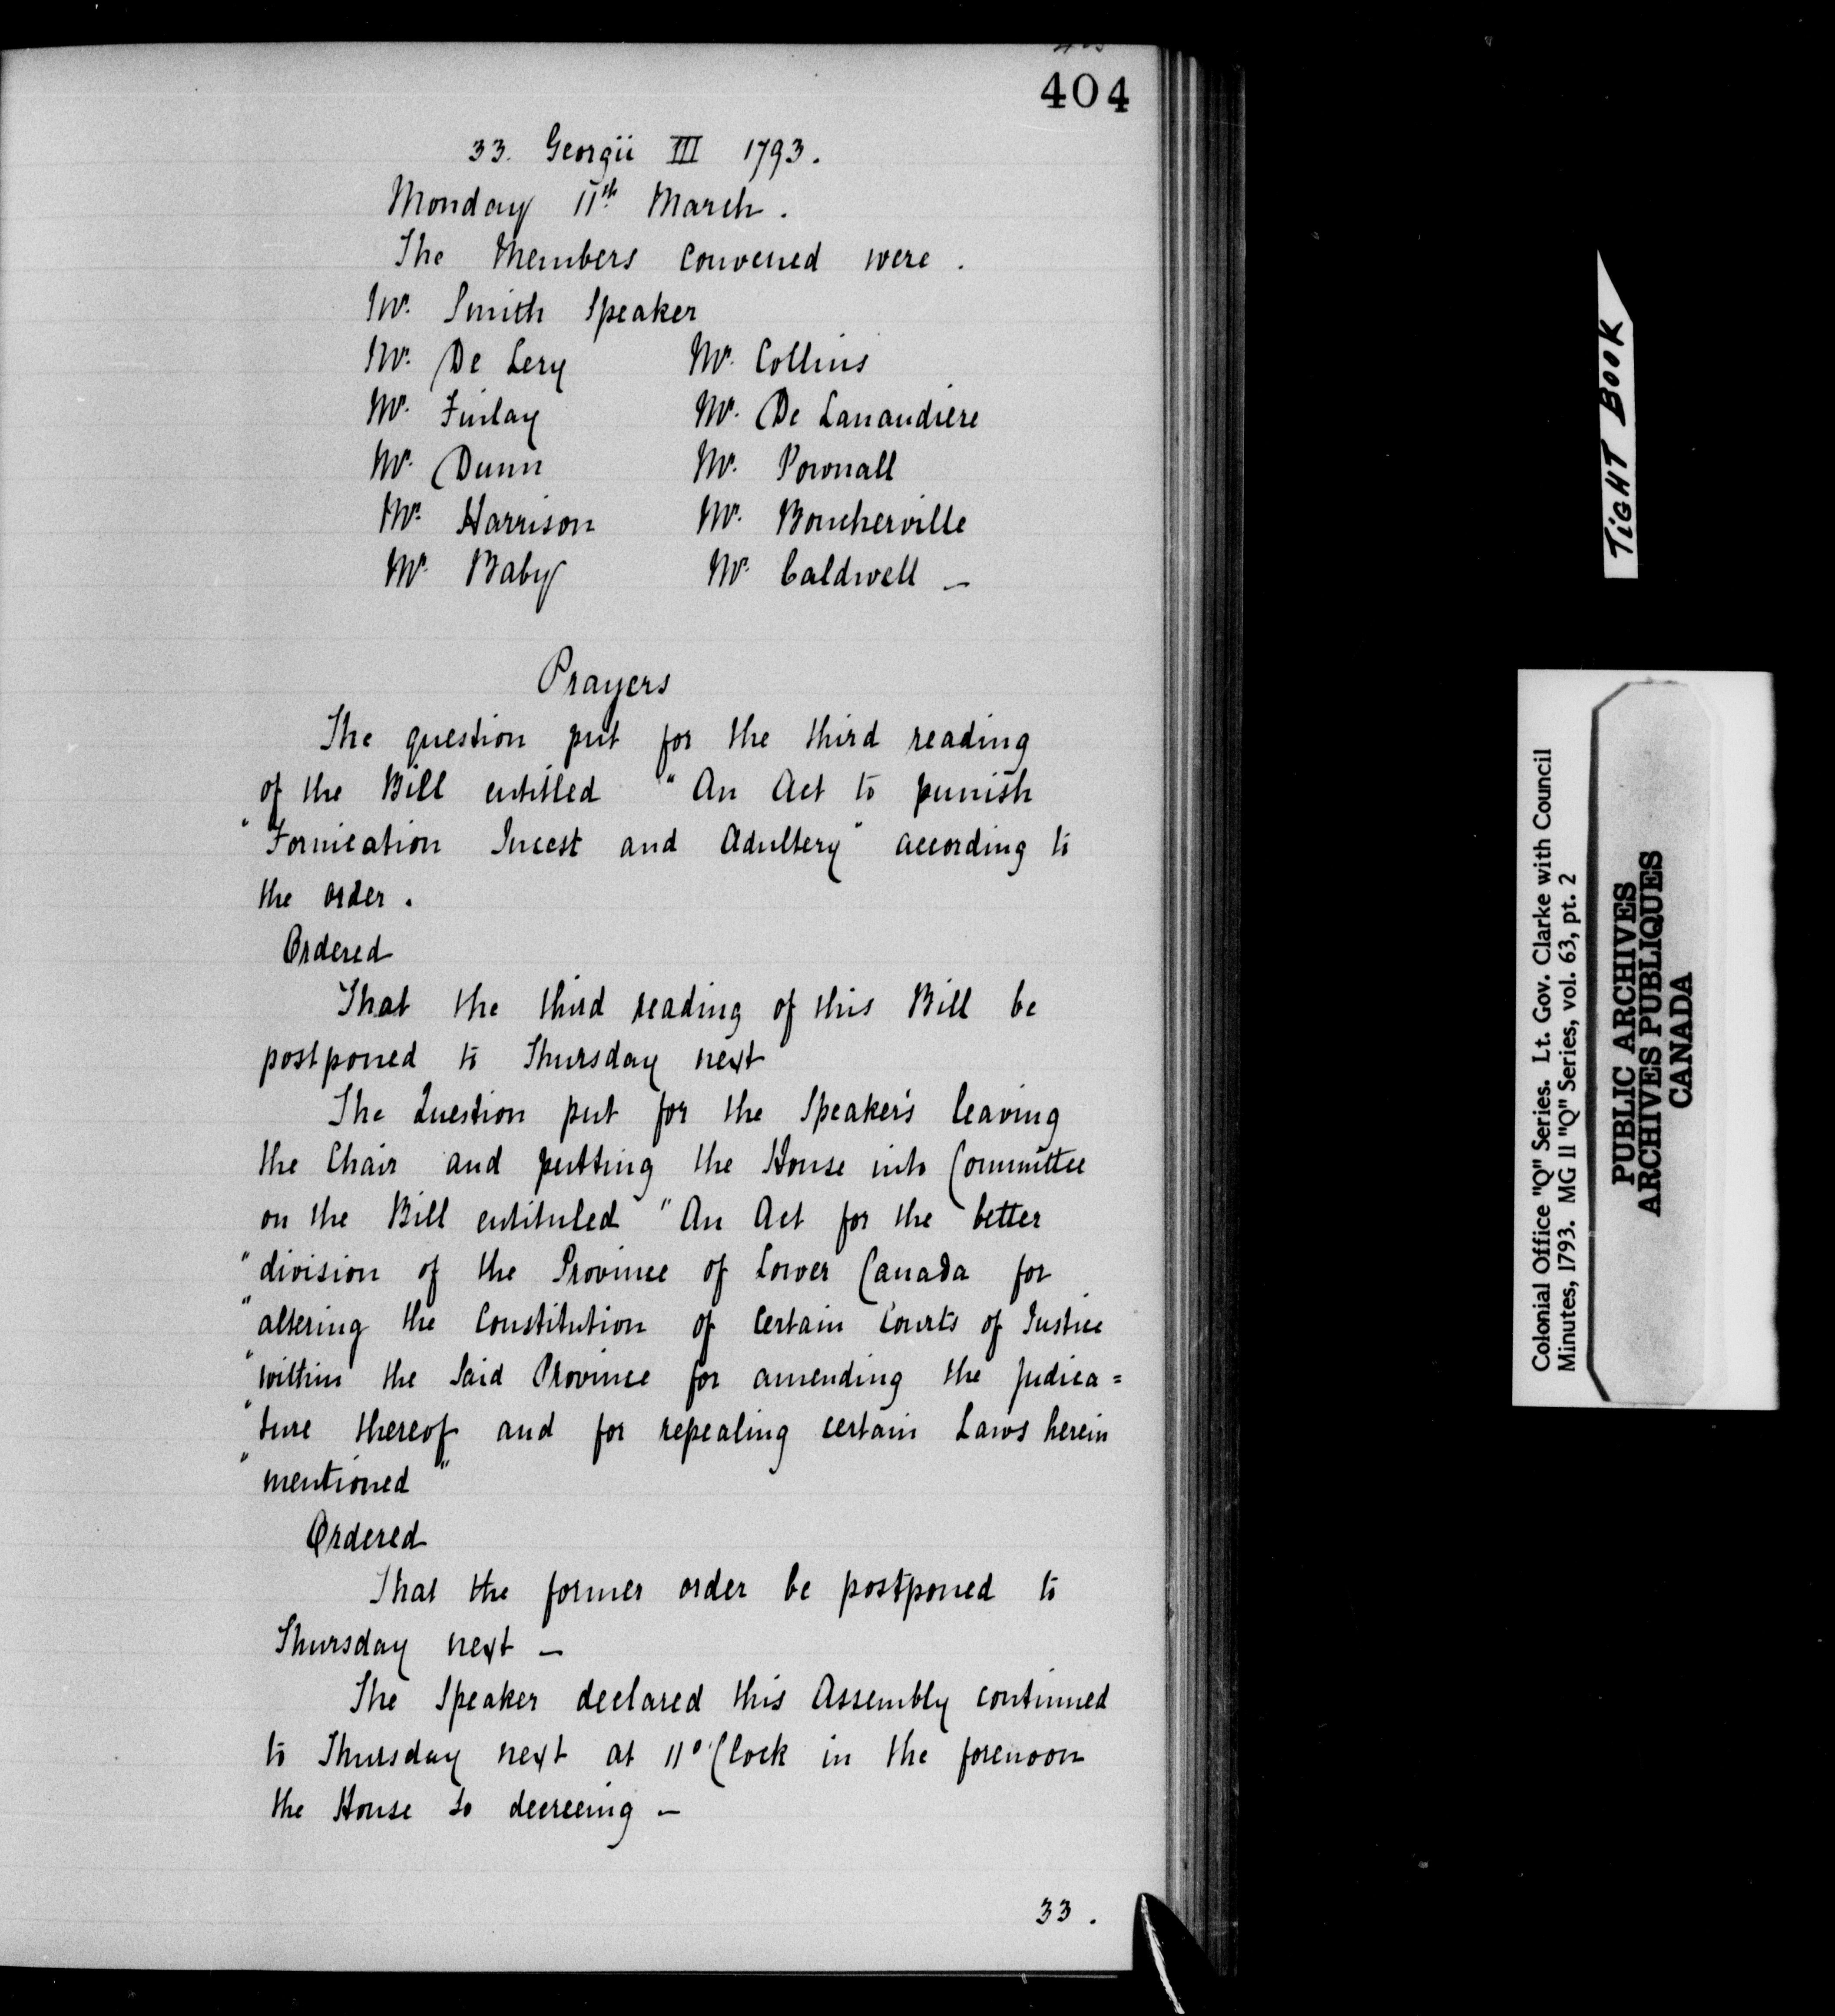 404
33. Georgii III 1793.
Monday 11th March.
The Members convened were.
Mr. Smith Speaker
Mr. De Lery Mr. Collins
Mr. Finlay Mr. De Lanaudiere
Mr. Dunn Mr. Pownall
Mr. Harrison Mr. Boucherville
Mr. Baby Mr. Caldwell —
Prayers
The question put for the third reading
of the Bill entitled "An Act to punish
"Fornication Incest and Adultery" according to
the order.
Ordered
That the third reading of this Bill be
postponed to Thursday next
The Question put for the Speaker's leaving
the Chair and putting the House into Committee
on the Bill entituled "An Act for the better
"division of the Province of Lower Canada for
"altering the Constitution of Certain Courts of Justice
"within the Said Province for amending the Judica=
"ture thereof and for repealing certain Laws herein
"mentioned"
Ordered
That the former order be postponed to
Thursday next —
The Speaker declared this Assembly continued
to Thursday next at 11 o'Clock in the forenoon
the House so decreeing —
33.
TIGHT BOOK
Colonial Office "Q" Series. Lt. Gov. Clarke with Council
Minutes, 1793. MG 11 "Q" Series, vol. 63, pt. 2
PUBLIC ARCHIVES
ARCHIVES PUBLIQUES
CANADA